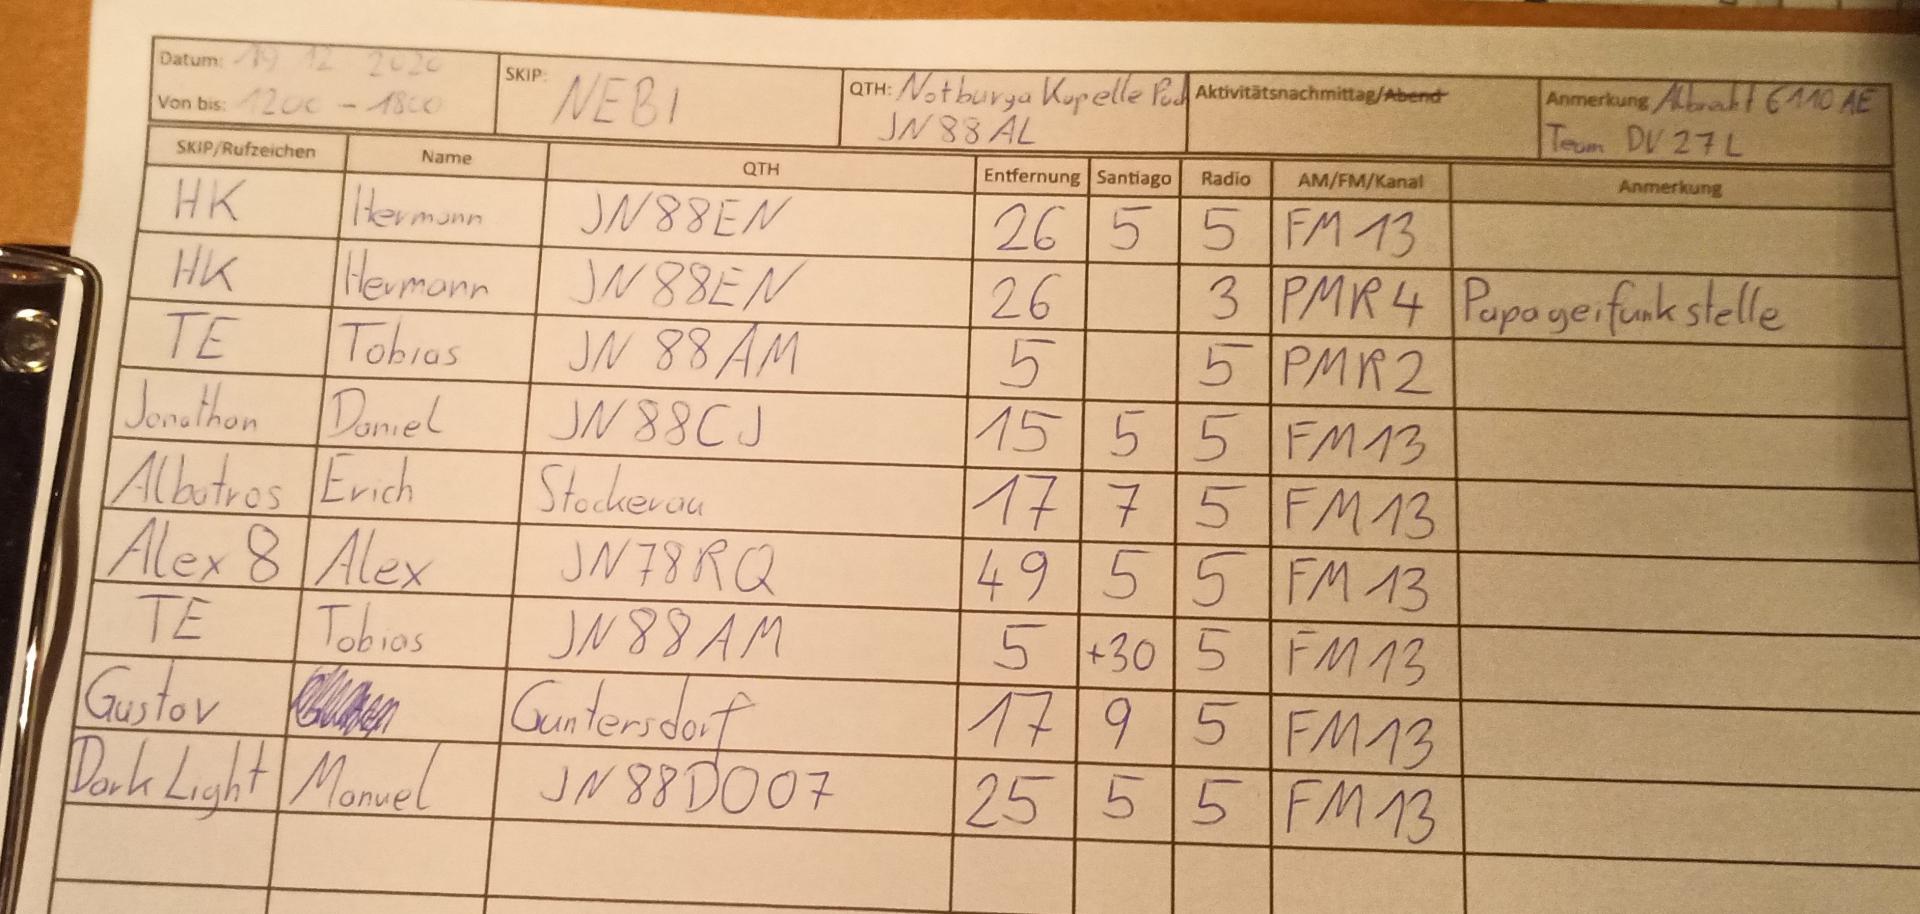 Datum: 19 12 2020 SKIP: NEBI QTH: Notburga Kapelle Pod Aktivitätsnachmittag/Abend Anmerkung Albrecht 6110 AE
Von bis: 1200 - 1800 JN88AL Team DV 27 L
SKIP/Rufzeichen Name QTH Entfernung Santiago Radio AM/FM/Kanal Anmerkung
HK Hermann JN88EN 26 5 5 FM 13
HK Hermann JN88EN 26 3 PMR 4 Papageifunkstelle
TE Tobias JN 88 AM 5 5 PMR 2
Jonathan Daniel JN88CJ 15 5 5 FM 13
Albatros Erich Stockerau 17 7 5 FM 13
Alex 8 Alex JN78RQ 49 5 5 FM 13
TE Tobias JN88AM 5 +30 5 FM 13
Gustav Guntersdorf 17 9 5 FM 13
Dark Light Manuel JN88DO07 25 5 5 FM 13